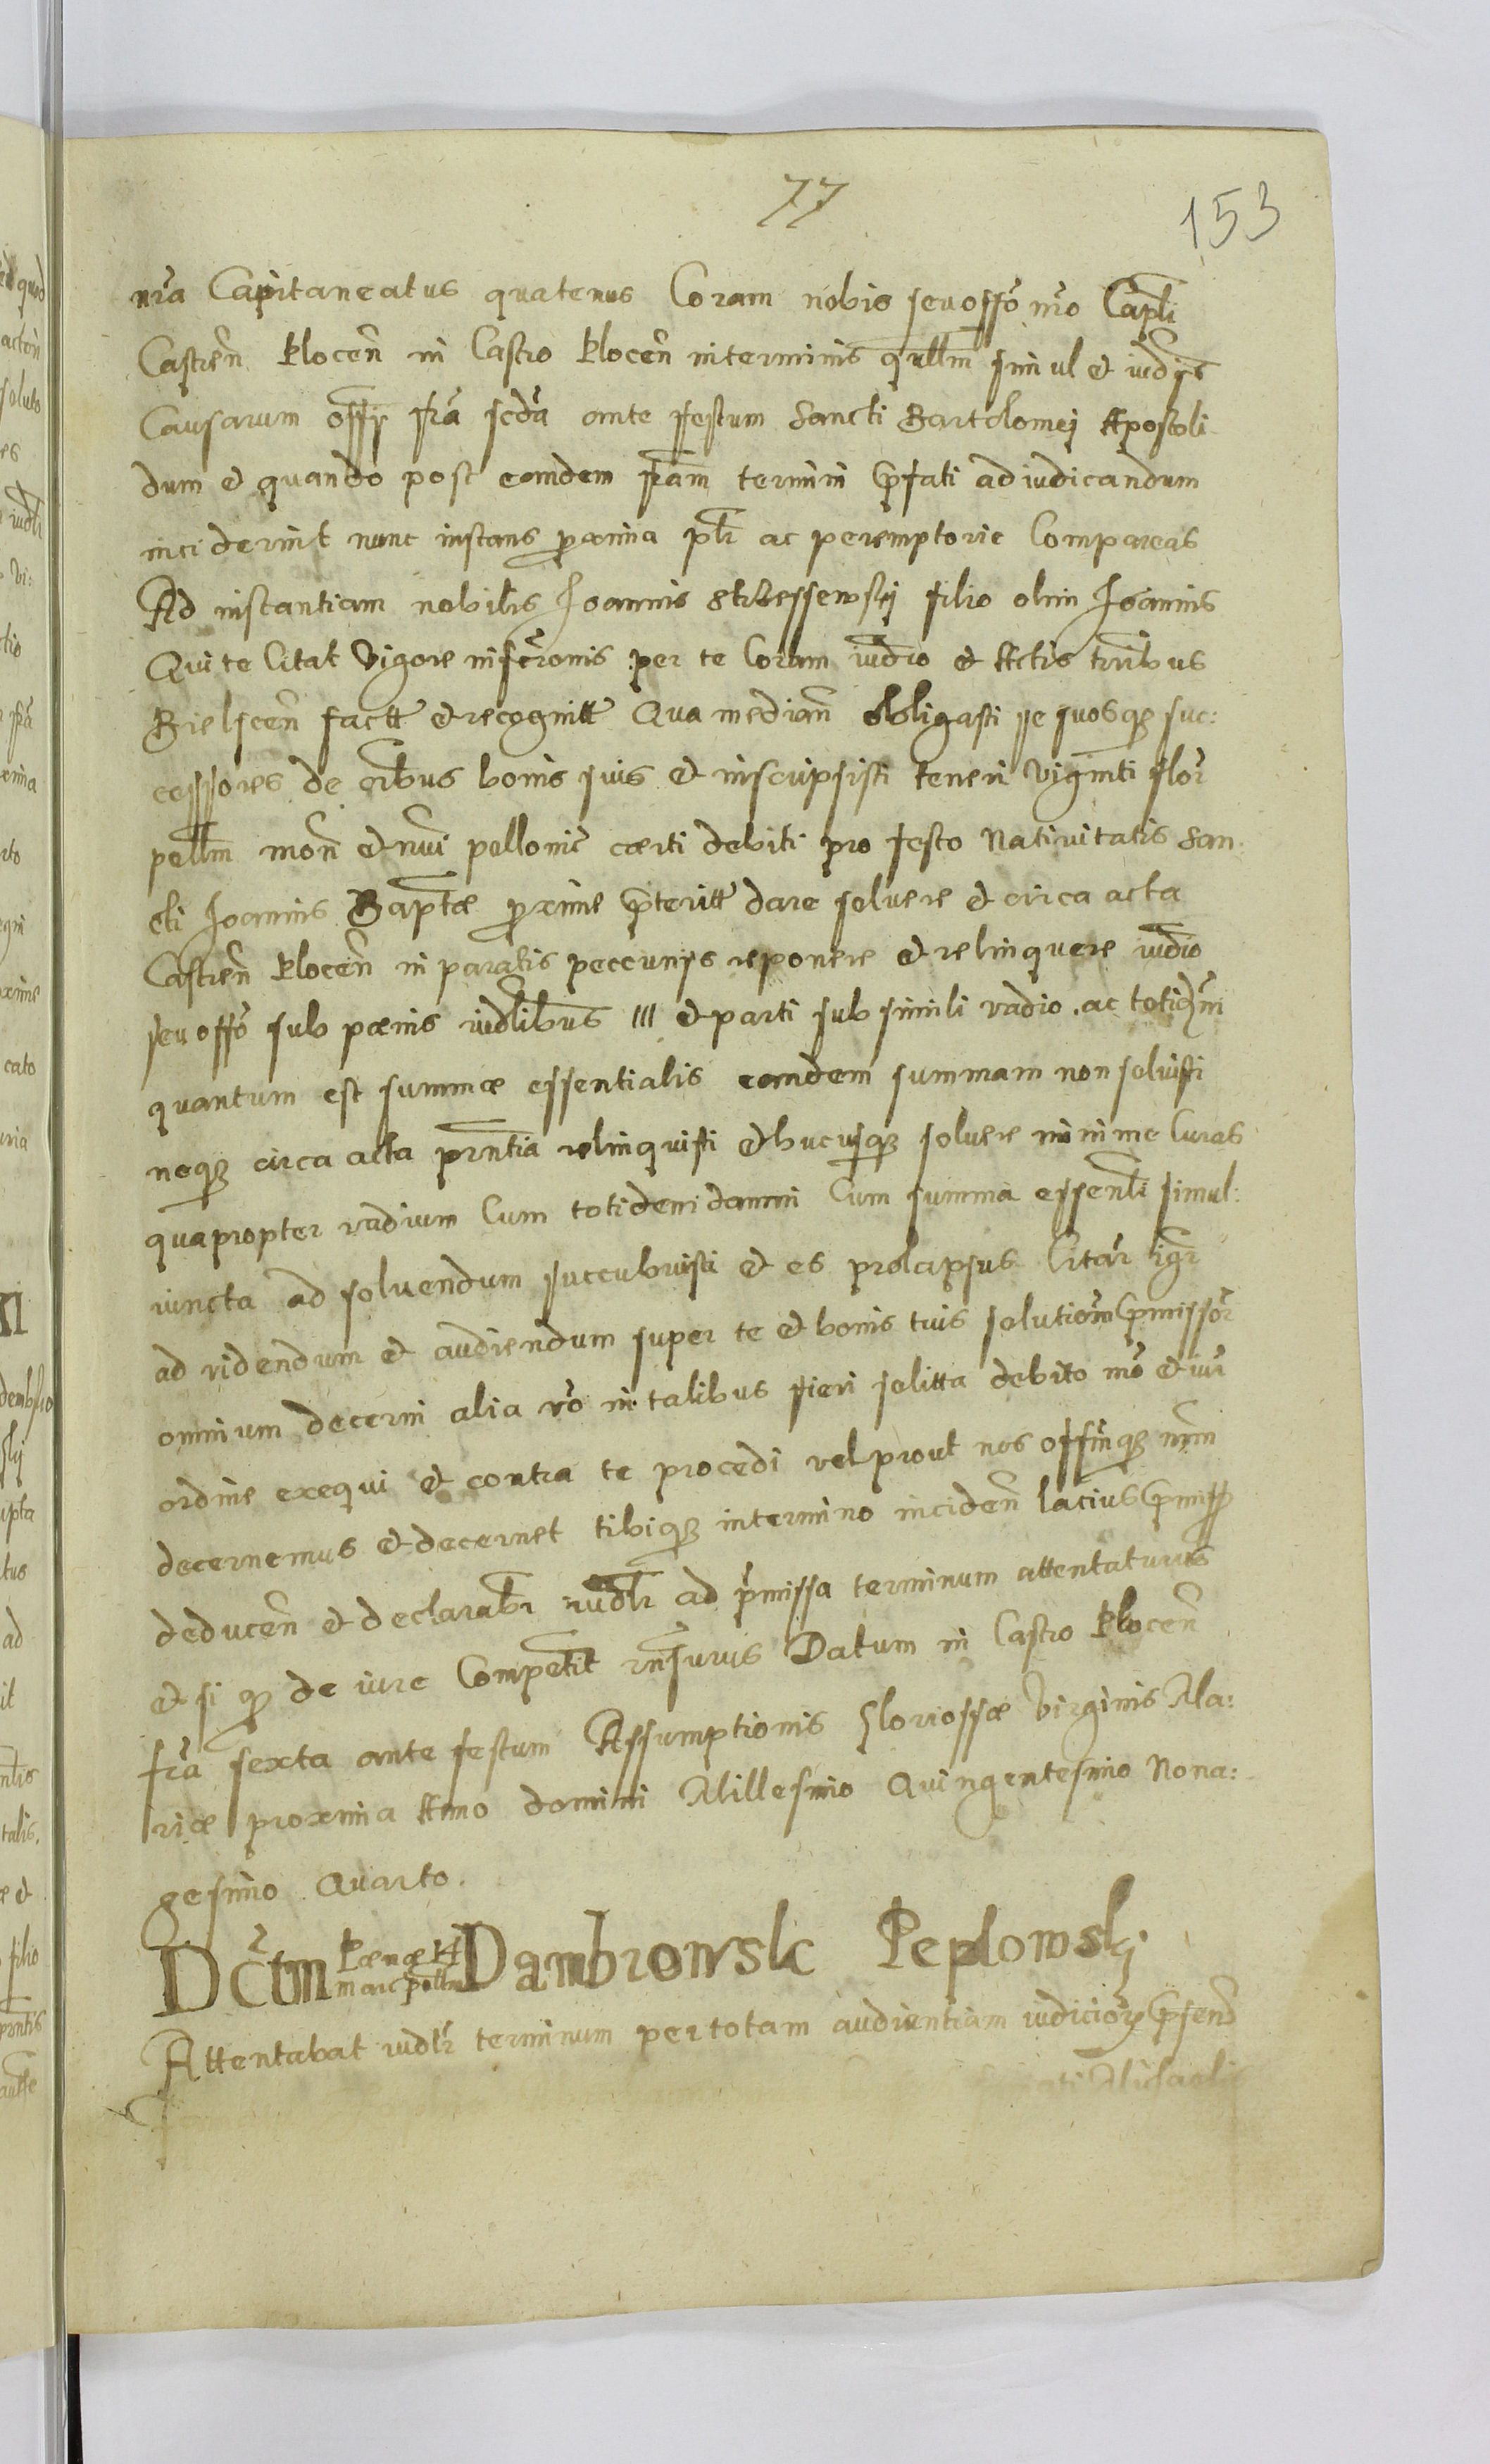 77
153
nr̃a Capitaneatus quatenus Coram nobis seu offõ nr̃o Capłi
Castreñ Plocen̄ in Castro Plocen̄ in terminis qr̄llm̄ simul et iudijs
Causarum offy fr̃a scd̃a ante festum Sancti Bartolomej Apostoli
dum et quando post eamdem fr̃am termini p̃fati ad iudicandum
inciderint nunc instans proxima ptr̃ ac peremptorie Compareas
Ad instantiam nobilis Joannis filio olim Joannis
Qui te Citat Vigore inscr̃onis per te Coram iud̃io et Actis trr̃bus
Bielscen̄ factt et recognitt Qua median̄ obligasti se suosq3 suc:
cessores de om̃bus bonis suis et inscripsisti teneri Viginti flor̃
pollm̄ mon̄ et nũi pollonic̃ certi debiti pro festo Nativitatis San:
cti Joannis Bap̃tæ proxime p̃teritt dare solvere et circa acta
Castren̄ Plocen̄ in paratis peccunijs reponere et relinquere iud̃io
seu offõ sub pœnis iudłibus III et parti sub simili vadio . ac totid̃m
quantum est summæ essentialis eamdem summam non solvisti
neq3 circa acta prñtia relinquisti et hucusq3 solvere minime Curas
quapropter vadium Cum totidem damni Cum summa essentłi simul:
iuncta ad solvendum succubuisti et es prolapsus Citar̃ igr̃
ad videndum et audiendum super te et bonis tuis solutiom̃ p̃missor̃
omnium decerni alia ṽo in talibus fieri solitta debito mõ et iur̃
ordine exequi et contra te procedi vel prout nos offm̃q3 nr̃m
decernemus et decernet tibiq3 in termino inciden̄ lacius p̃miss
deducen̄ et declarabr̃ iudłr ad p̃missa terminum attentaturus
et si q3 de iure Compettit rñsurus Datum in Castro Plocen̄
fr̃a sexta ante festum Assumptionis Gloriossæ Virginis Ma:
riæ proxima Anno domini Millesimo Quingentesimo Nona:
gesimo Quarto.
Dc̃tm Pœnæ
marc pollm Dambrowsk Peplowskj
Attentabat iudłr terminum per totam audientiam iudicior̃ p̃sen̄
Michaelis